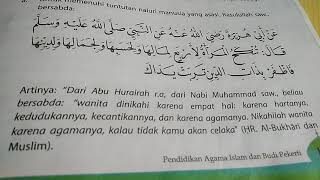 memenuhi tuntutan naluri manusia yang asasi, Rasulullah saw.,
bersabda:
عَنْ أَبِي هُرَيْرَةَ رَضِيَ اللهُ عَنْهُ عَنِ النَّبِيِّ صَلَّى اللهُ عَلَيْهِ وَسَلَّمَ
قَالَ: تُنْكَحُ الْمَرْأَةُ لِأَرْبَعٍ لِمَالِهَا وَلِحَسَبِهَا وَلِجَمَالِهَا وَلِدِيْنِهَا
فَاظْفَرْ بِذَاتِ الدِّيْنِ تَرِبَتْ يَدَاكَ
Artinya: "Dari Abu Hurairah r.a, dari Nabi Muhammad saw., beliau
bersabda: "wanita dinikahi karena empat hal: karena hartanya,
kedudukannya, kecantikannya, dan karena agamanya. Nikahilah wanita
karena agamanya, kalau tidak kamu akan celaka" (HR. Al-Bukhāri dan
Muslim).
Pendidikan Agama Islam dan Budi Pekerti